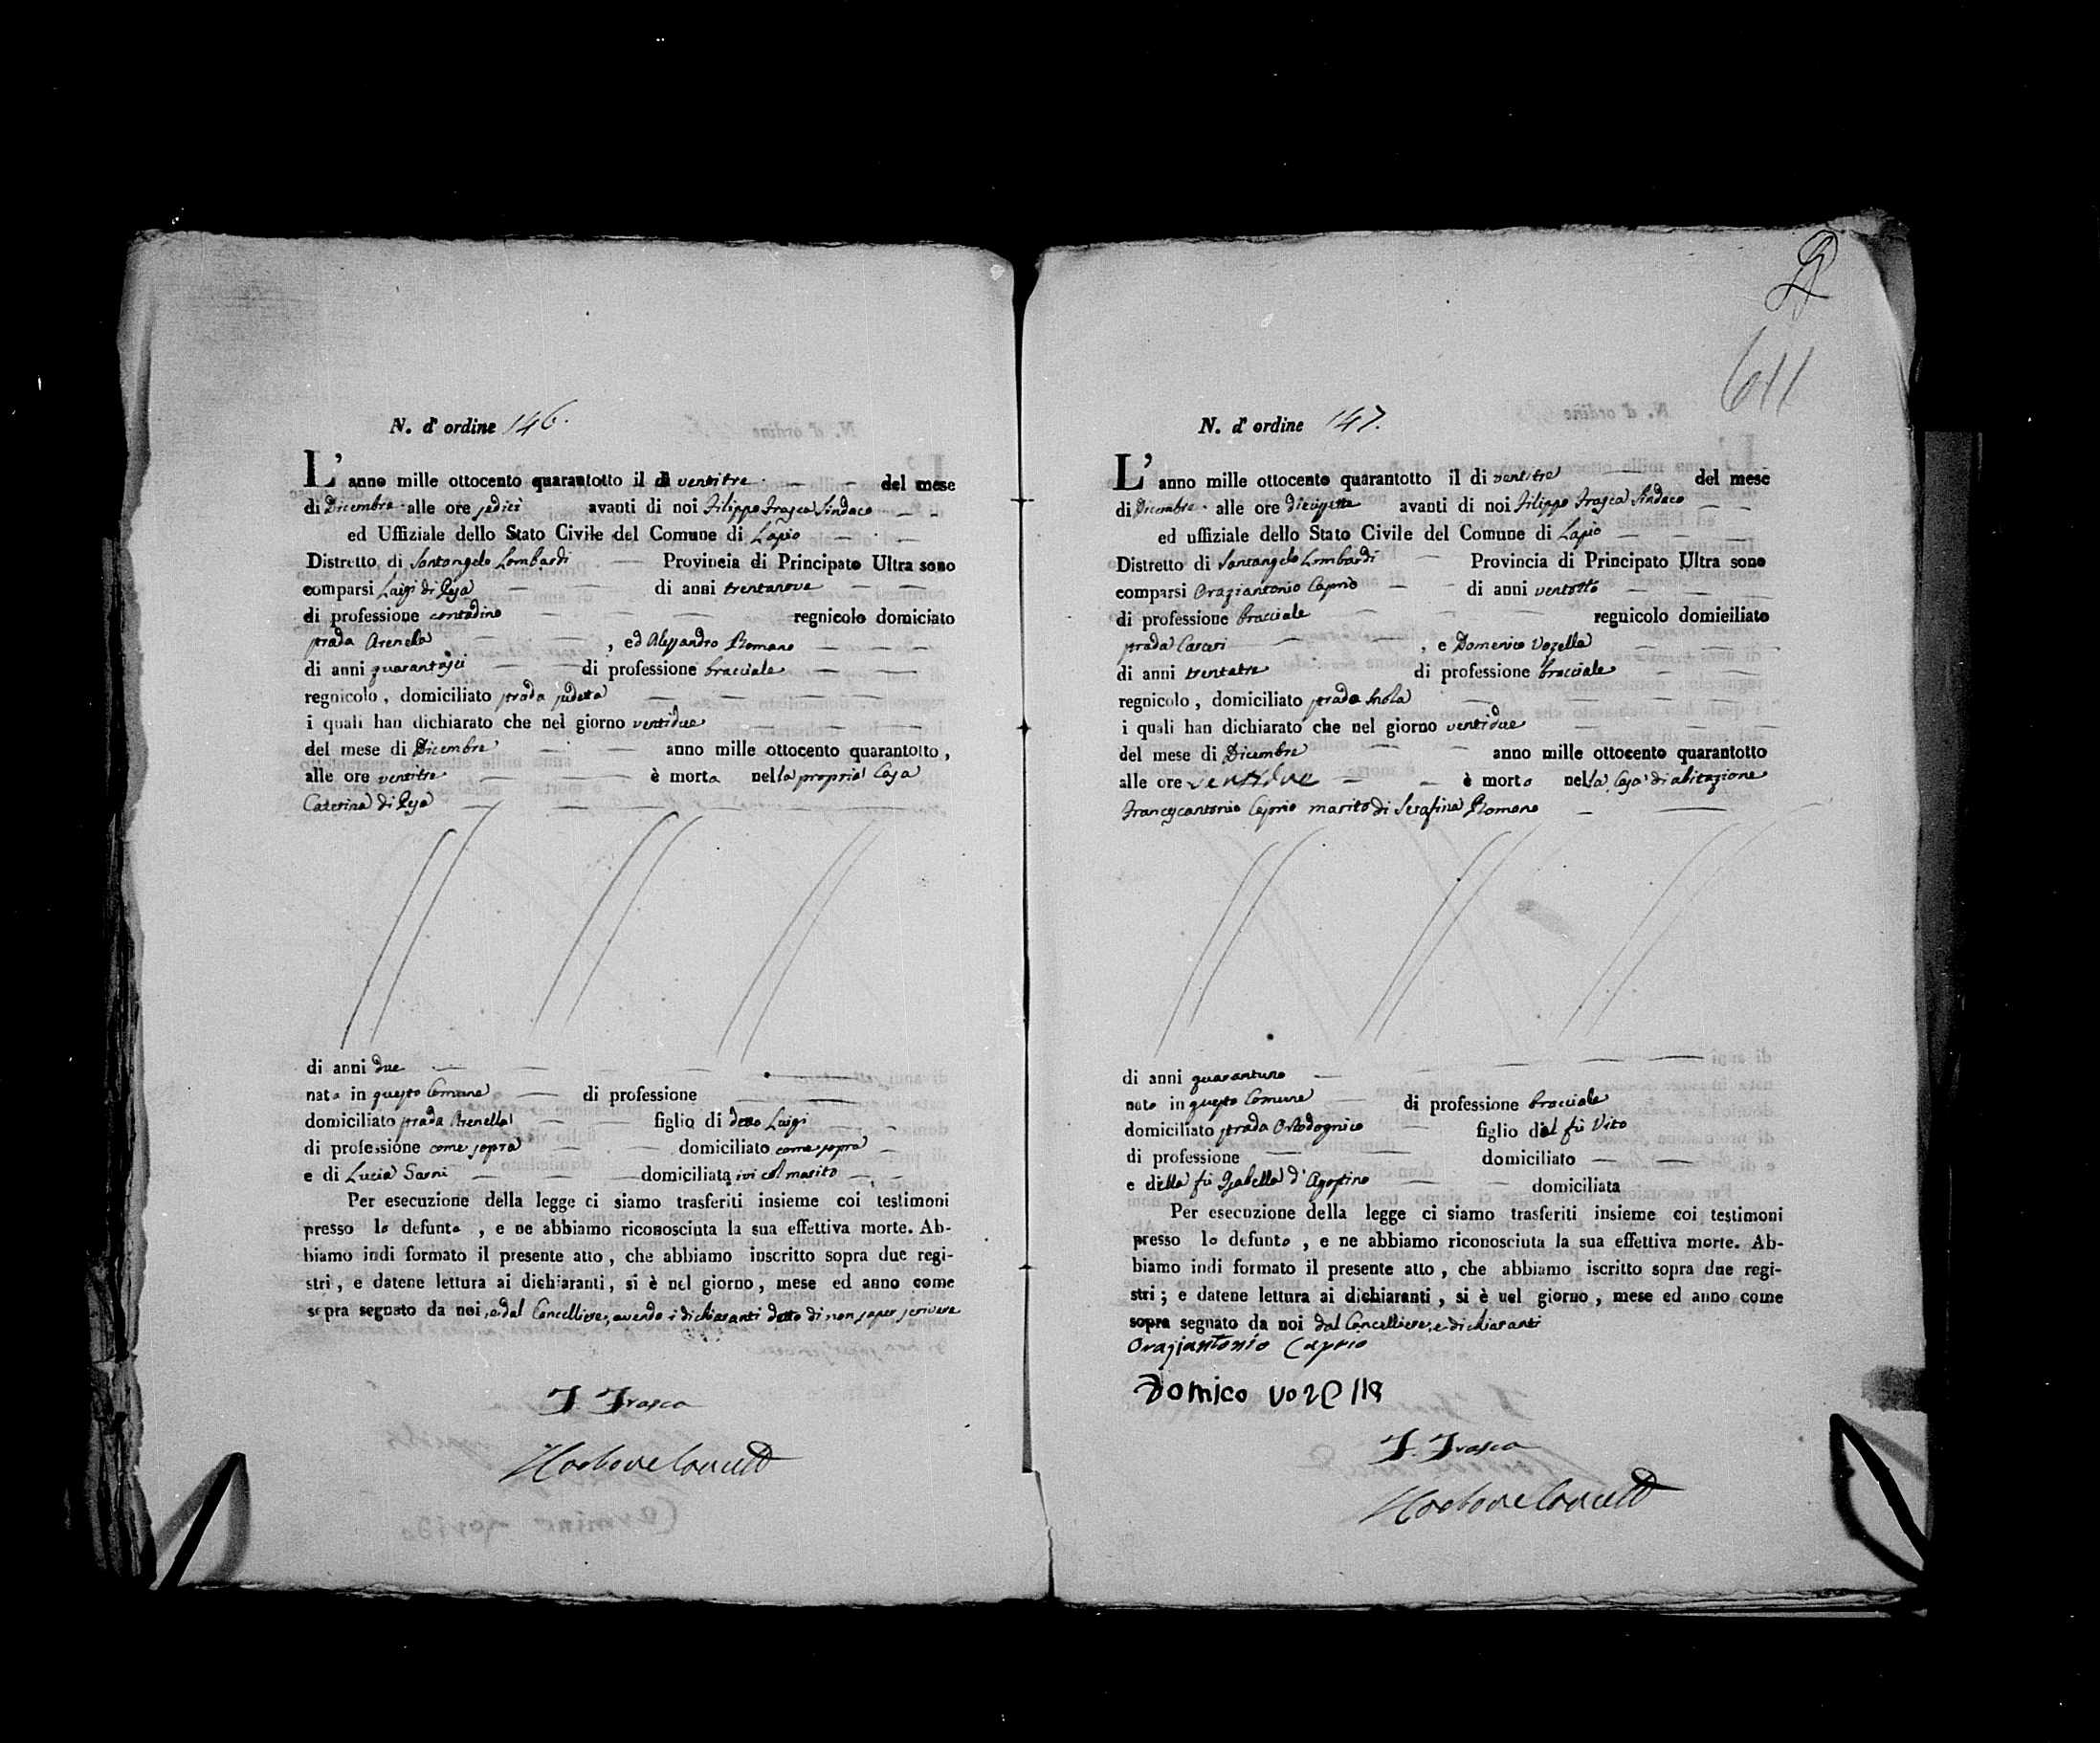 N. d' ordine 146.
L' anno mille ottocento quarantotto il di ventitre del mese
di Dicembre alle ore sedici avanti di noi Filippo Frasca Sindaco
ed Uffiziale dello Stato Civile del Comune di Lapio
Distretto di Santangelo Lombardi Provincia di Principato Ultra sono
comparsi Luigi di Pesa di anni trentanove
di professione contadino regnicolo domiciato
strada Arenella , ed Alessandro Romano
di anni quarantasei di professione bracciale
regnicolo , domiciliato strada
i quali han dichiarato che nel giorno ventidue
del mese di Dicembre anno mille ottocento quarantotto ,
alle ore ventitre è morta nella propria Casa
Caterina di Pesa
di anni due
nata in questo Comune di professione
domiciliato strada Arenella figlio di detto Luigi
di professione come sopra domiciliato come sopra
e di Lucia Sarni domiciliata ivi col marito
Per esecuzione della legge ci siamo trasferiti insieme coi testimoni
presso la defunta , e ne abbiamo riconosciuta la sua effettiva morte. Ab-
biamo indi formato il presente atto , che abbiamo inscritto sopra due regi-
stri , e datene lettura ai dichiaranti, si è nel giorno , mese ed anno come
sopra segnato da noi, e dal Cancelliere, avendo i dichiaranti detto di non saper scrivere
F. Frasca
611
N. d' ordine 147.
L' anno mille ottocento quarantotto il di ventitre del mese
di Dicembre alle ore diciissette avanti di noi Filippo Frasca Sindaco
ed uffiziale dello Stato Civile del Comune di Lapio
Distretto di Santangelo Lombardi Provincia di Principato Ultra sono
comparsi Oraziantonio Caprio di anni ventotto
di professione bracciale regnicolo domiciliato
strada Carceri , e Domenico Vozella
di anni trentatre di professione bracciale
regnicolo , domiciliato strada
i quali han dichiarato che nel giorno ventidue
del mese di Dicembre anno mille ottocento quarantotto
alle ore ventidue è morto nella Casa di abitazione
Francescantonio Caprio marito di Serafina Romano
di anni quarantuno
nato in questo Comune di professione bracciale
domiciliato strada figlio del fù Vito
di professione domiciliato
e della fù Isabella d'Agostino domiciliata
Per esecuzione della legge ci siamo trasferiti insieme coi testimoni
presso lo defunto , e ne abbiamo riconosciuta la sua effettiva morte. Ab-
biamo indi formato il presente atto , che abbiamo iscritto sopra due regi-
stri ; e datene lettura ai dichiaranti , si è nel giorno , mese ed anno come
sopra segnato da noi dal Cancelliere, e dichiaranti
Oraziantonio Caprio
Domico Vozella
F. Frasca